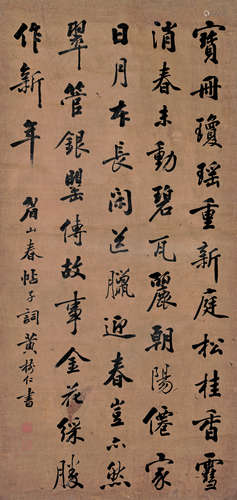 寶冊瓊瑤重新庭松桂香雪
消春未動碧瓦麗朝陽僊家
日月本長閑送臘迎春豈亦然
翠管銀罌傳故事金花綵勝
作新年
眉山春帖子詞黃仁書